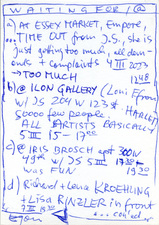 WAITING FOR / @
a) AT ESSEX MARKET, Empore,
... TIME OUT from J.S., she is
just getting too much, all
+ complaints 4 III 2073
→ TOO MUCH 1248
b) @ ILON GALLERY (Loni Efron
w/ JS 204 W 123 & HARLEM
50000 few people.
ALL ARTISTS BASICALLY
5 III 15 - 1700
c) @ IRIS BROSCH apt 300W
49th w/ JS 5 III 1730-
was FUN 1930
d) Richard + Lena KROEHLING
+ Lisa RINZLER in front